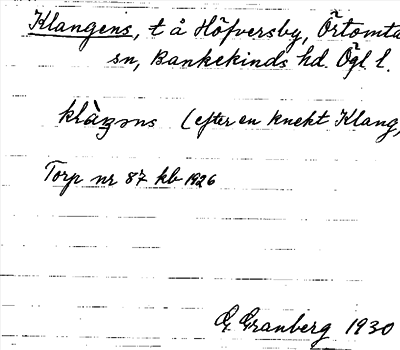 Klangens, t å Höfversby, Örtomta
sn, Bankekinds hd. Ögl l.
klàŋəns (efter en knekt Klang,
Torp nr 87 kb 1926
G. Granberg 1930